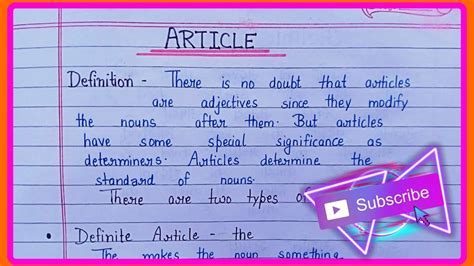 ARTICLE
Definition - There is no doubt that articles
are adjectives since they modify
the nouns after them. But articles
have some special significance as
determiners. Articles determine the
standard of nouns.
There are two types
Subscribe
• Definite Article - the
The makes the noun something